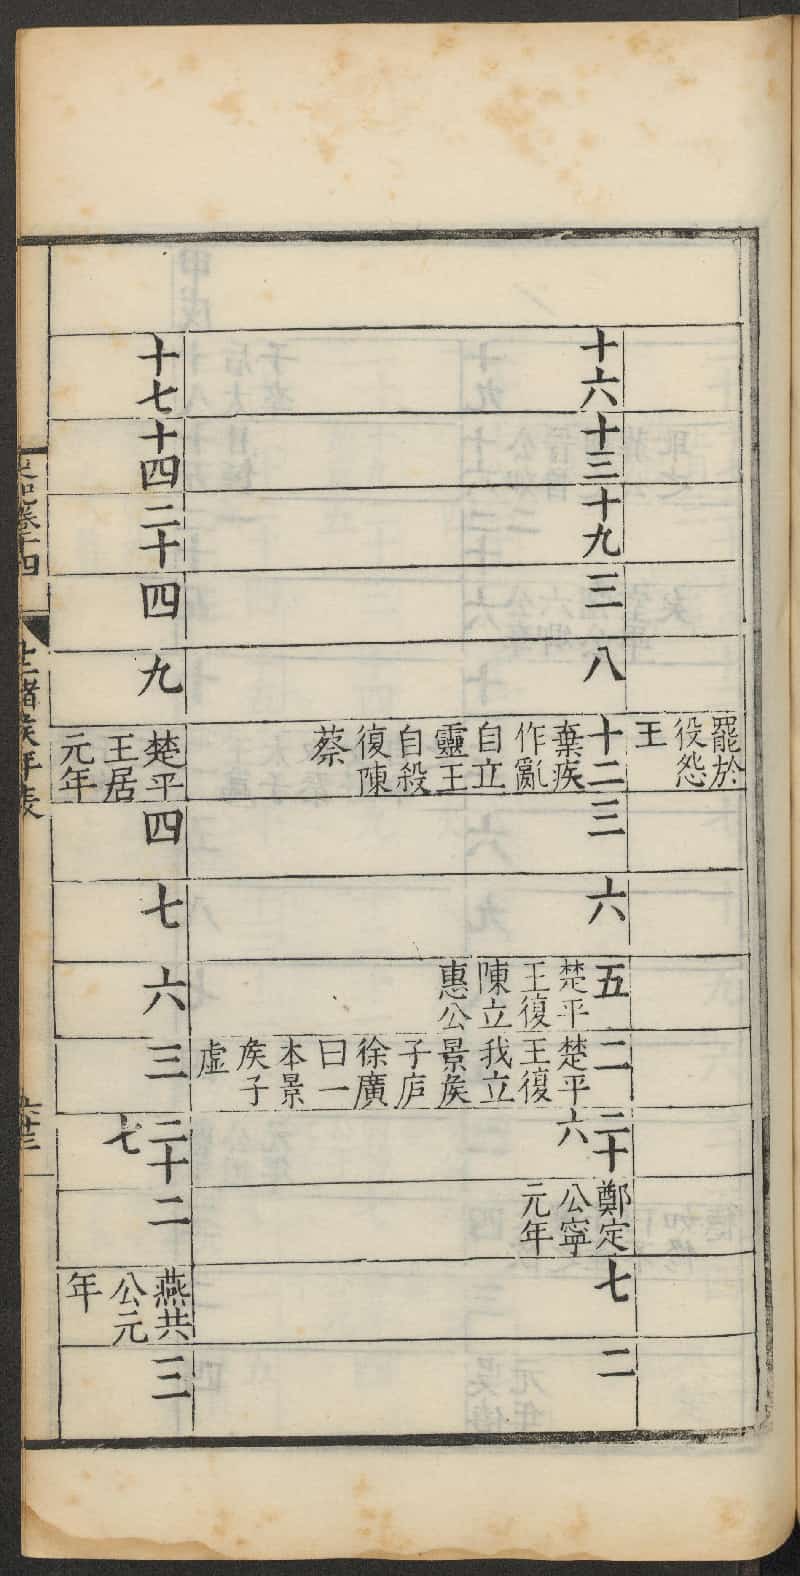 罷於
役怨
王
十六
十三
十九
三
八
十二
棄疾
作亂
自立
靈王
自殺
復陳
蔡
三
六
五
楚平
王復
陳立
惠公
二
楚平
王復
我立
景矦
子庐
徐廣
曰一
本景
矦子
虛
二十
六
鄭定
公寧
元年
七
二
十七
十四
二十
四
九
楚平
王居
元年
四
七
六
三
二十
七
二
燕共
公元
年
三
史記卷十四
十二諸矦年表